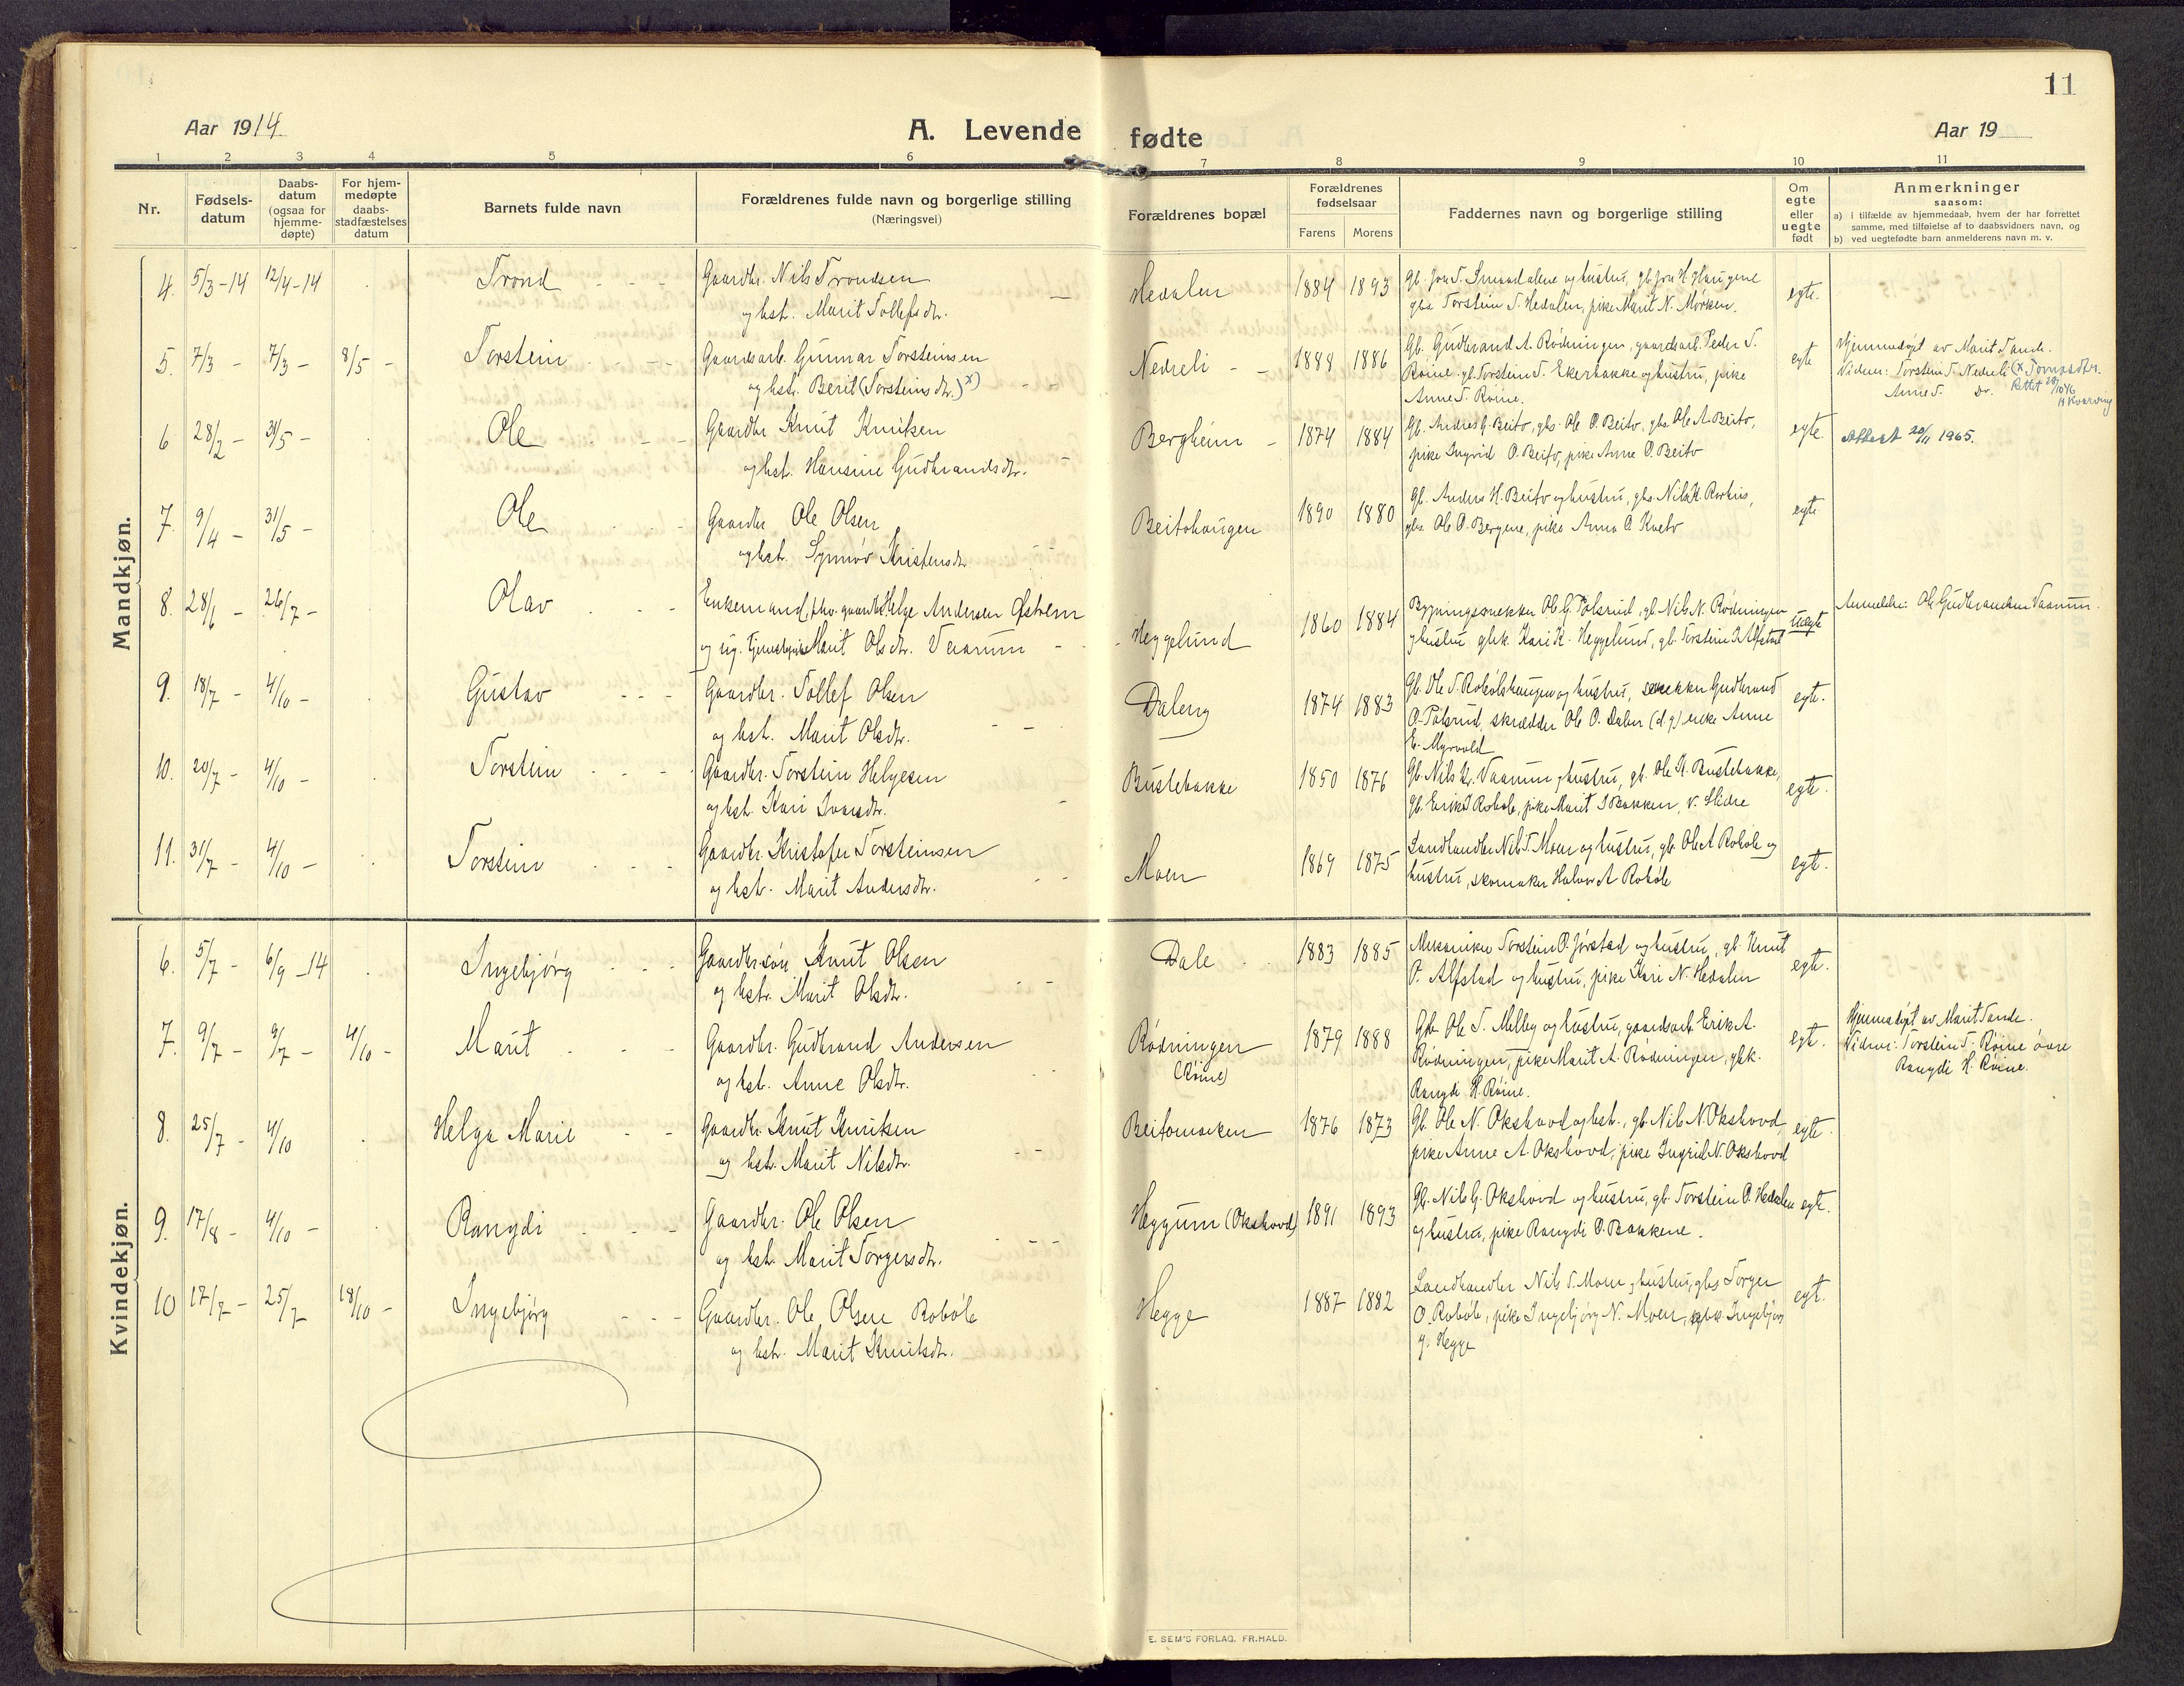 11
Aar 1914
A. Levende fødte
Aar 19
1 2 3 4 5 6 7 8 9 10 11
Nr.
Fødsels-
datum
Daabs-
datum
(ogsaa for
hjemme-
døpte)
For hjem-
medøpte
daabs-
stadfæstelses
datum
Barnets fulde navn
Forældrenes fulde navn og borgerlige stilling
(Næringsvei)
Forældrenes bopæl
Forældrenes
fødselsaar
Farens Morens
Faddernes navn og borgerlige stilling
Om
egte
eller
uegte
født
Anmerkninger
saasom:
a) i tilfælde av hjemmedaab, hvem der har forrettet
samme, med tilføielse af to daabsvidners navn, og
b) ved uegtefødte barn anmelderens navn m. v.
Mandkjøn.
4. 5/3-14 12/4-14 Trond
Gaardbr. Nils Trondsen
og hst. Marit Tollefsdtr.
Hedalen 1884 1893
Gb. Jon T. Smaadalene og hustru, gb. Jon H. Haugene
gbs. Torstein T. Hedalen, pike Marit N. Mørken.
egte.
5. 7/3 - 7/3 - 8/5 - Torstein
Gaardsarb. Gunnar Torsteinsen
og hst. Berit (Torsteinsdtr.) x)
Nedreli 1888 1886
Gb. Gudbrand A. Rødningen, gaardsarb. Peder T.
Røine. gb. Torstein T. Ekerbakke og hustru, pike
Anne T. Røine.
egte
Hjemmedøpt av Marit Sande.
Vidner: Torstein T. Nedreli (x Tomasdtr.
Anne T. Do. Rettet 28/10 46
H Kvarving
6 28/2 - 31/5 - Ole
Gaardbr Knut Knutsen
og hst. Hansine Gudbrandsdtr.
Bergheim 1874 1884
Gb. Andres G. Beito, gbs. Ole O. Beito, gbs. Ole A. Beito,
pike Ingrid O. Beito, pike Anne O. Beito
egte
Attest 20/11 1965.
7. 9/4 - 31/5 - Ole
Gaardbr Ole Olsen
og hst. Synnøv Kristensdtr
Beitohaugen 1890 1880
Gb. Anders H. Beito og hustru, gbs. Nils K.
gbs. Ole O. Bergene, pike Anna O. Kveto
egte
8. 28/6 - 26/7 - Olav
Enkemand, fhv. gaardbr Helge Andersen Østrem
og ug. tjenestepike Marit Olsdtr. Vaarum
Heggelund 1860 1884
Bygningssnekker Ole G. Pålsrud, gb. Nils N. Rødningen
og hustru gbk. Kari K. Heggelund, gb. Torstein K Alfstad
Uegte
Anmelder: Ole Gudbrandsen Vaarum.
9. 18/7 - 4/10 - Gustav
Gaardbr. Tollef Olsen
og hst. Marit Olsdtr.
Daleng 1874 1883
Gb. Ole T. Robølshaugen og hustru, snekker Gudbrand
O. Pålsrud, skrædder Ole O. Dalen (d.y.) enke Anne
E. Myrvold
egte.
10. 20/7 - 4/10 - Torstein
Gaardbr. Torstein Helgesen
og hst. Kari Ivarsdtr.
Bustebakke 1850 1876
Gb. Nils Kr. Vaarum og hustru, gb. Ole K. Bustebakke,
gb. Erik T Robøle, pike Marit I Bakken, V. Slidre
egte.
11. 31/7 - 4/10 - Torstein
Gaardbr. Kristofer Torsteinsen
og hst. Marit Andersdtr.
Moen 1869 1875
Landhandler Nils T. Moen og hustru, gb. Ole A Robøle og
hustru, skomaker Halvor A Robøle
egte.
Kvindekjøn.
6. 5/7 - 6/9 -14 Ingebjørg
Gaardbr.søn Knut Olsen
og hst. Marit Olsdtr.
Dale 1883 1885
Mekaniker Torstein O. Jørstad og hustru, gb. Knut
O. Alfstad og hustru, pike Kari N. Hedalen
egte.
7. 9/7 - 9/7 - 4/10 - Marit
Gaardbr. Gudbrand Andersen
og hst. Anne Olsdtr.
Rødningen
(Røine)
1879 1888
Gb. Ole T. Melby og hustru, gaardsarb. Erik A.
Rødningen, pike Marit A. Rødningen, gbk.
Rangdi H. Røine.
egte.
Hjemmedøpt av Marit Sande.
Vidner: Torstein T. Røine øvre
Rangdi H. Røine.
8. 25/7 - 4/10 Helga Marie
Gaardbr. Knut Knutsen
og hst. Marit Nilsdtr.
Beitomarken 1876 1873
Gb. Ole N. Okshovd og hst., gb. Nils N. Okshovd,
pike Anne A. Okshovd, pike Ingrid N. Okshovd
egte.
9. 17/8 - 4/10 - Rangdi
Gaardbr. Ole Olsen
og hst. Marit Torgersdtr.
Heggum (Okshovd) 1891 1893
Gb. Nils G. Okshovd og hustru, gb. Torstein O. Hedalen
og hustru, pike Rangdi O. Bakkene.
egte.
10 17/7 - 25/7 18/10 - Ingebjørg
Gaardbr. Ole Olsen Robøle
og hst. Marit Knutsdtr.
Hegge 1887 1882
Landhandler Nils T. Moen og hustru, gbs Torger
O. Robøle, pike Ingebjørg N. Moen, gbk. Ingebjørg
G. Hegge
egte.
E. SEM'S FORLAG. FR.HALD.